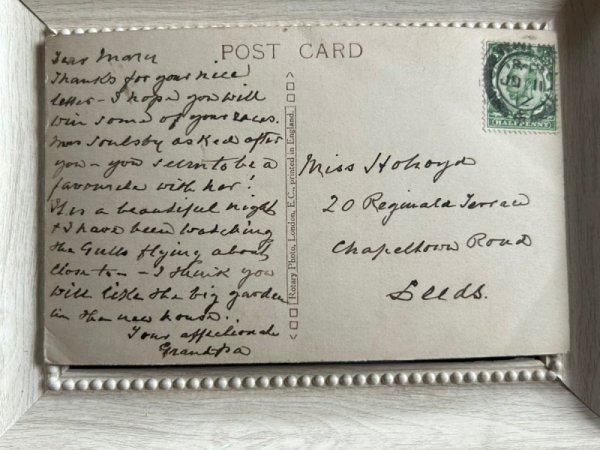 POST CARD
Dear Mary
Thanks for your nice
letter - I hope you will
win some of your races.
Mrs Soulsby asked after
you - you seem to be a
favourite with her!
It is a beautiful night
& I have been watching
the Gulls flying about
close to - - I think you
will like the big garden
in the new house..
Your affectionate
Grandpa
Rotary Photo, London, E.C., printed in England.
HALFPENNY
Miss
20 Reginald Terrace
Chapeltown Road
Leeds.